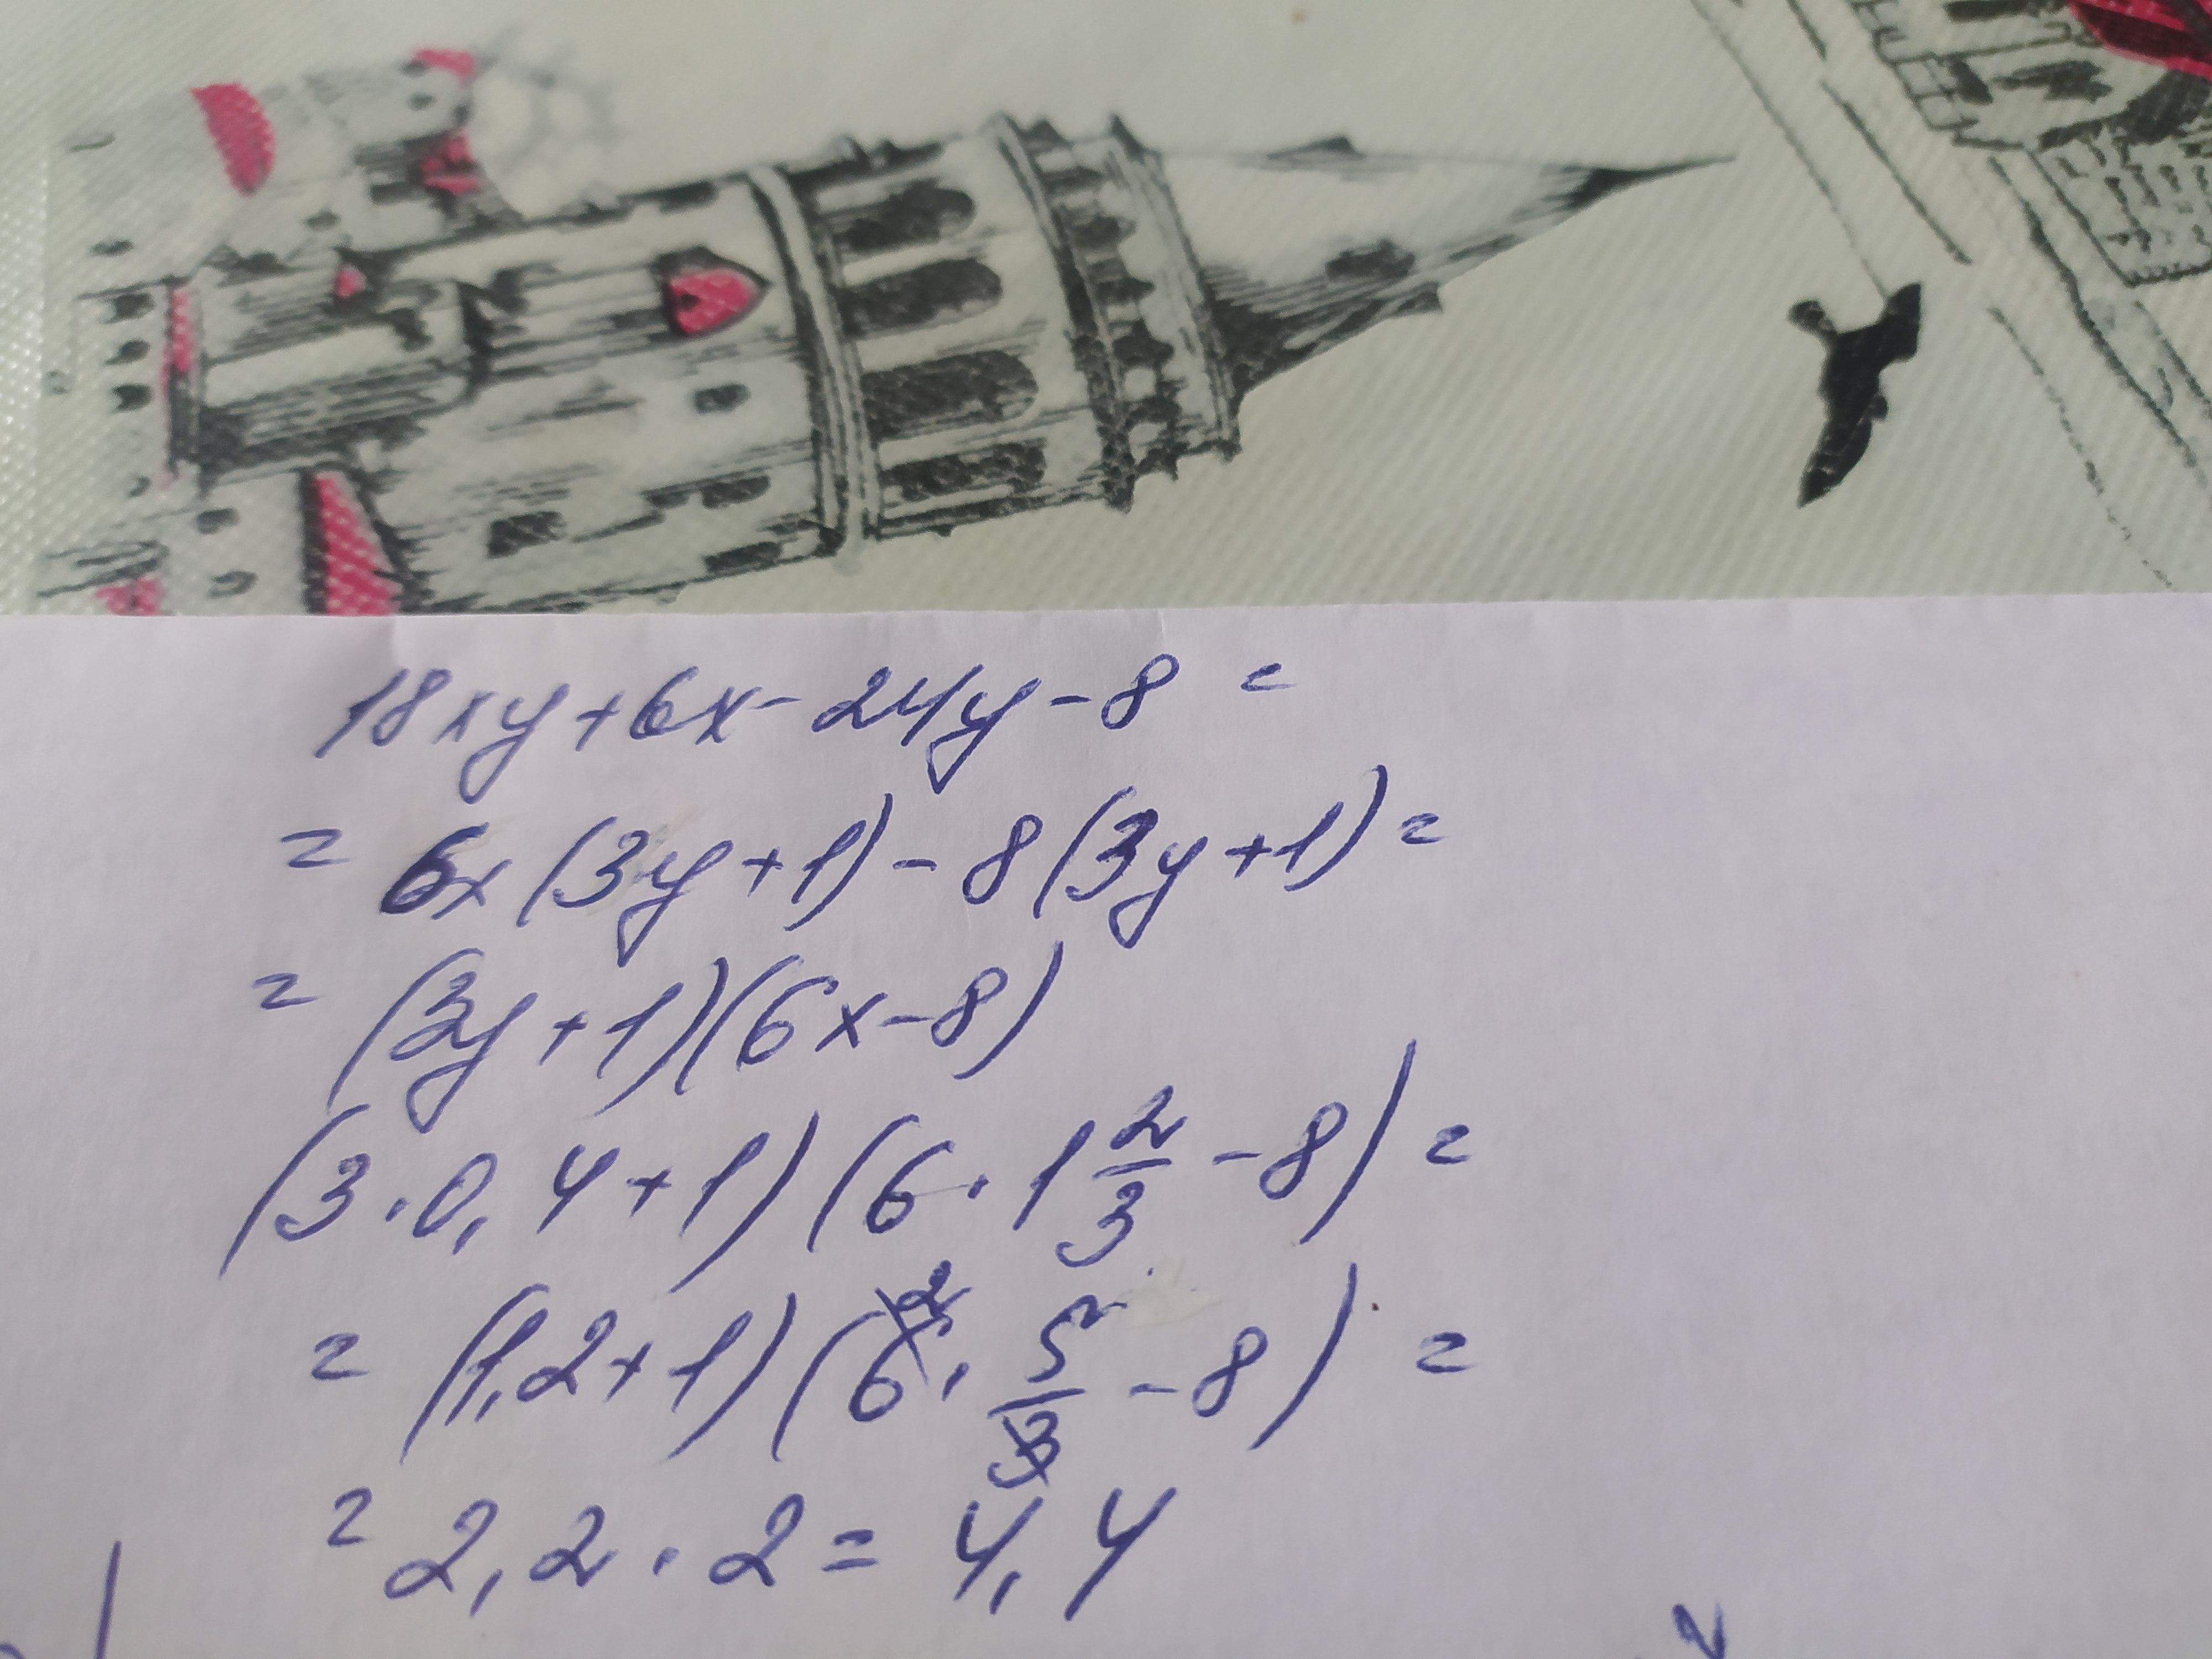 18xy+6x-24y-8=
=6x(3y+1)-8(3y+1)=
=(3y+1)(6x-8)
(3·0,4+1)(6·1 2/3-8)=
=(1,2+1)(6·5/3-8)=
2
=2,2·2=4,4